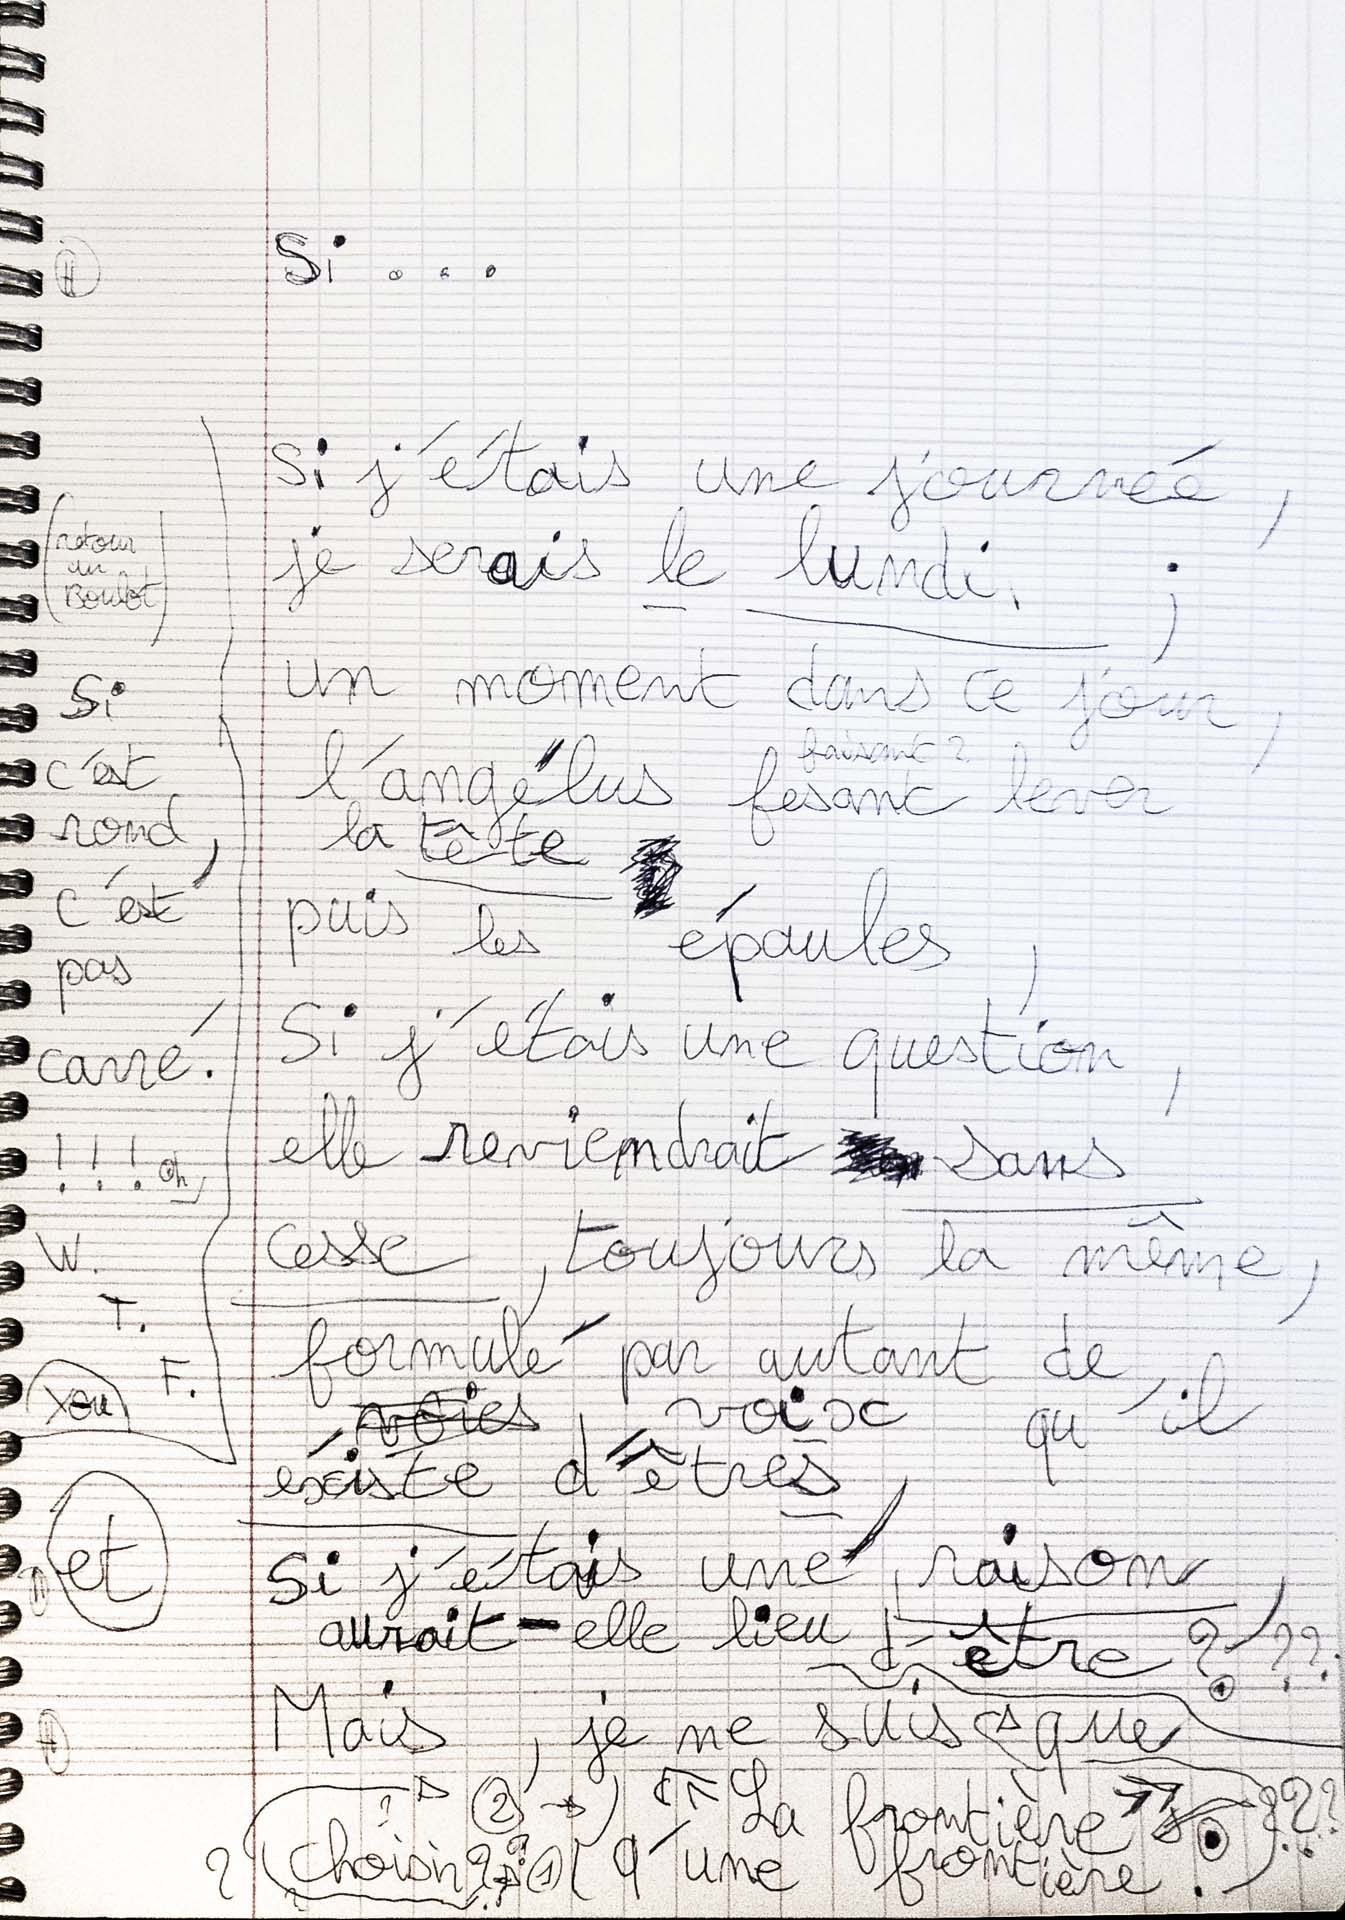 Si ...
Si j'étais une journéé,
je serais le lundi. ;
un moment dans ce jour,
faisant ?
l'angélus fesant lever
la tête
puis les épaules,
Si j'étais une question,
elle reviendrait sans
cesse, toujours la même,
formulé par autant de
voies, voix qu'il
éxiste d'êtres,
Si j'étais une raison,
aurait-elle lieu d'être ? ???
Mais, je ne suis que
② → « La frontière » ???
? choisir ? ① q'une frontière.
(retour
au
Boulot)
Si
c'est
rond,
c'est
pas
carré.
!!! oh
W.
T.
F.
You
et